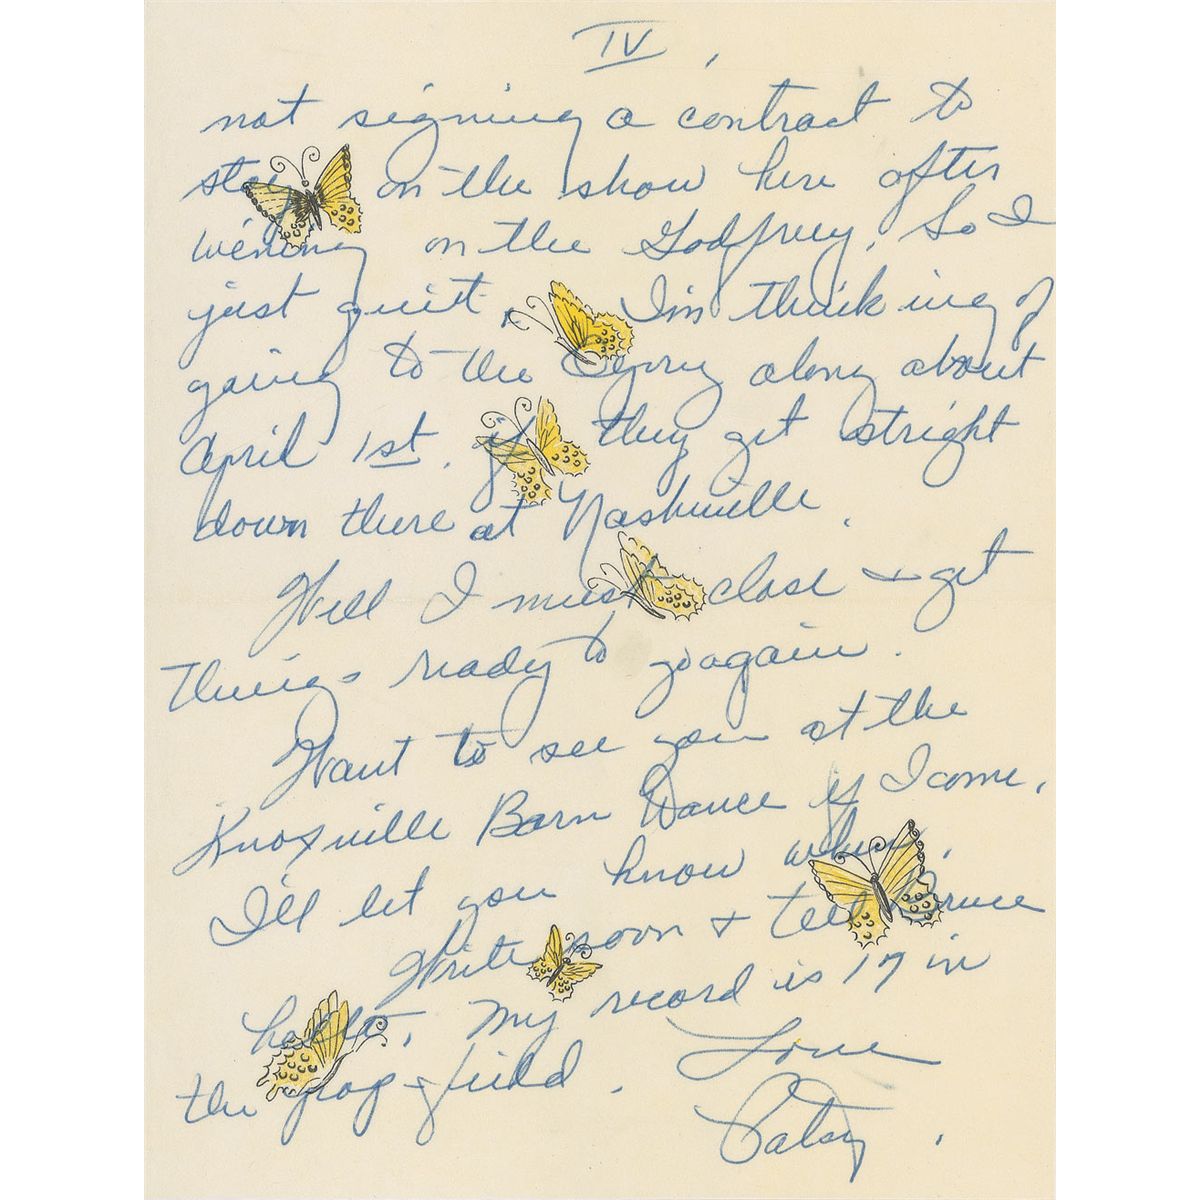 IV
not signing a contract to
stay on the show here after
wining on the Godfrey. So I
just quit. I'm thinking of
going to the Opry along about
April 1st. if they get stright
down there at Nashville.
Well I must close + get
things ready to go again.
Want to see you at the
Knoxville Barn Dance if I come.
I'll let you know when.
Write soon + tell Bruce
hello. My record is 17 in
the pop field.
Love
Patsy.